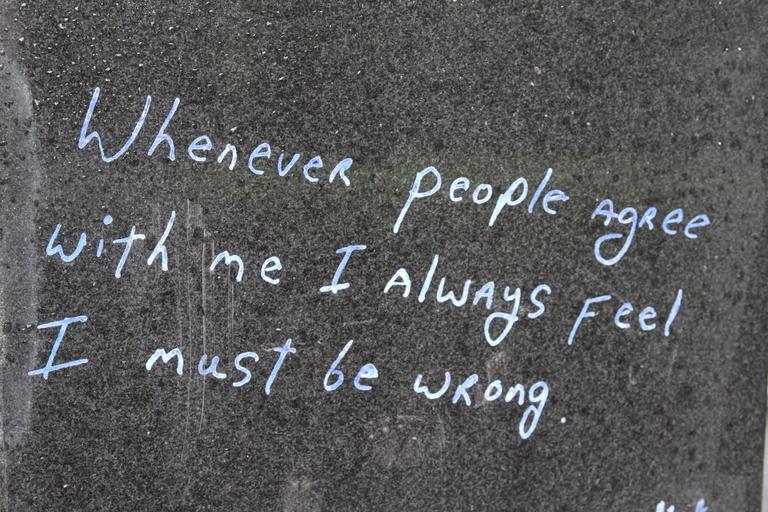 Whenever people agree
with me I always feel
I must be wrong.